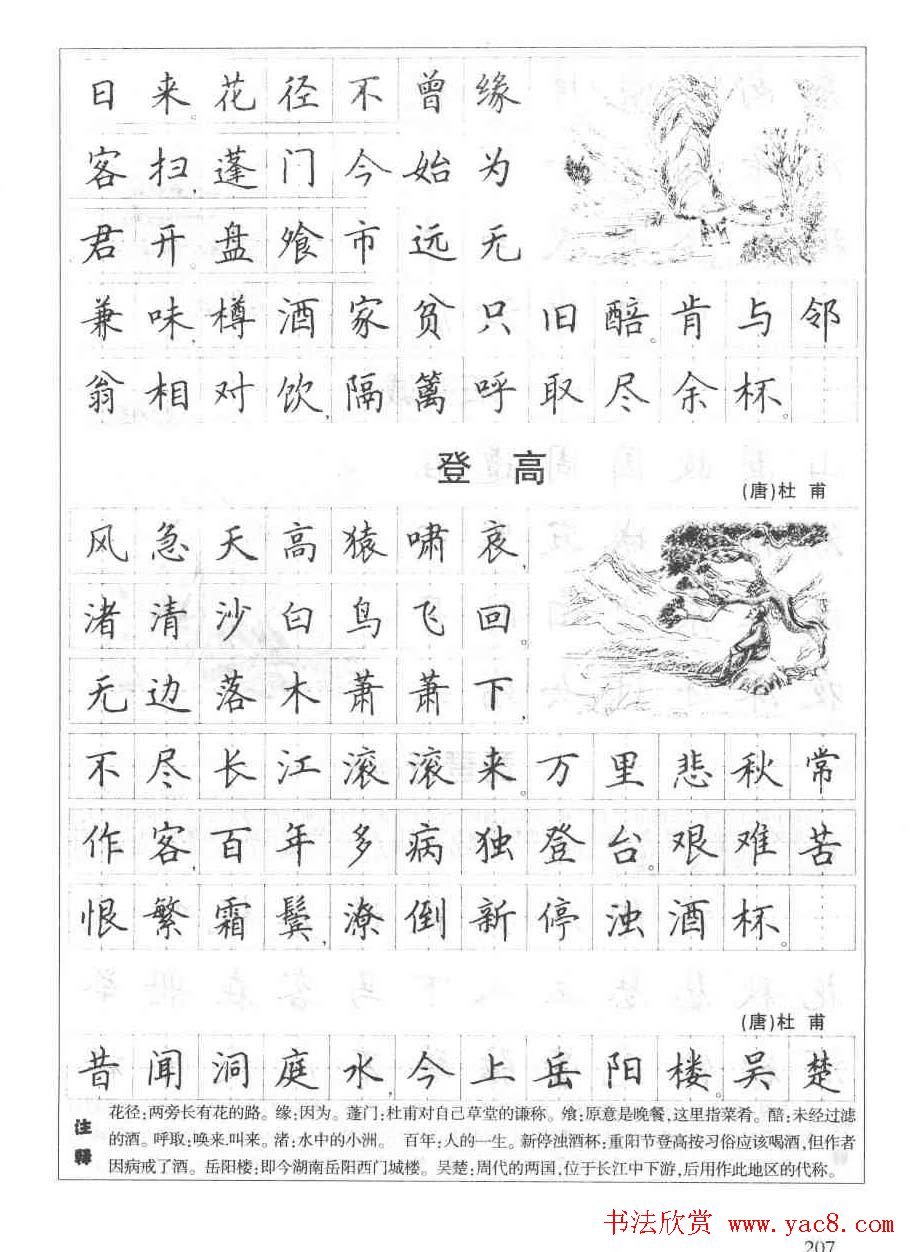 日来。花径不曾缘
客扫,蓬门今始为
君开。盘飧市远无
兼味,樽酒家贫只旧醅。肯与邻
翁相对饮,隔篱呼取尽余杯。
登 高
(唐)杜 甫
风急天高猿啸哀,
渚清沙白鸟飞回。
无边落木萧萧下,
不尽长江滚滚来。万里悲秋常
作客,百年多病独登台。艰难苦
恨繁霜鬓,潦倒新停浊酒杯。
(唐)杜 甫
昔闻洞庭水,今上岳阳楼。吴楚
注释
花径:两旁长有花的路。缘:因为。蓬门:杜甫对自己草堂的谦称。飧:原意是晚餐,这里指菜肴。醅:未经过滤
的酒。呼取:唤来,叫来。渚:水中的小洲。 百年:人的一生。新停浊酒杯:重阳节登高按习俗应该喝酒,但作者
因病戒了酒。岳阳楼:即今湖南岳阳西门城楼。吴楚:周代的两国,位于长江中下游,后用作此地区的代称。
书法欣赏 www.yac8.com
207